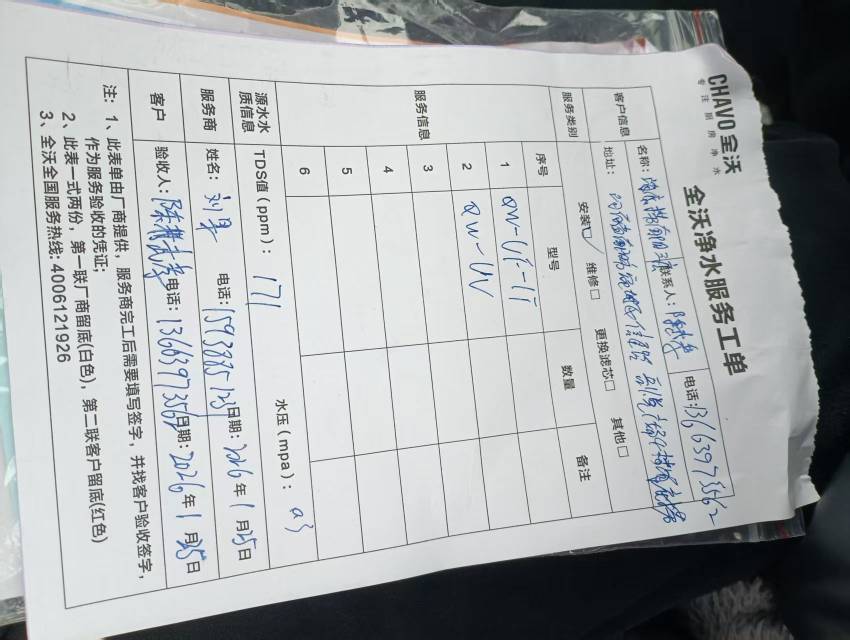 CHAVO全沃
专注厨房净水
全沃净水服务工单
客户信息 名称: 联系人: 电话: 13663973562
地址:
服务类别 安装☑ 维修□ 更换滤芯□ 其他□
服务信息 序号 型号 数量 备注
1 QW-UF-1T
2 QW-UV
3
4
5
6
源水水质信息 TDS值(ppm): 171 水压(mpa): 0.3
服务商 姓名: 刘 电话: 日期: 2026年1月25日
客户 验收人: 陈 电话: 13663973562 日期: 2026年1月25日
注: 1、此表单由厂商提供,服务商完工后需要填写签字,并找客户验收签字,
作为服务验收的凭证;
2、此表一式两份,第一联厂商留底(白色),第二联客户留底(红色)
3、全沃全国服务热线: 4006121926